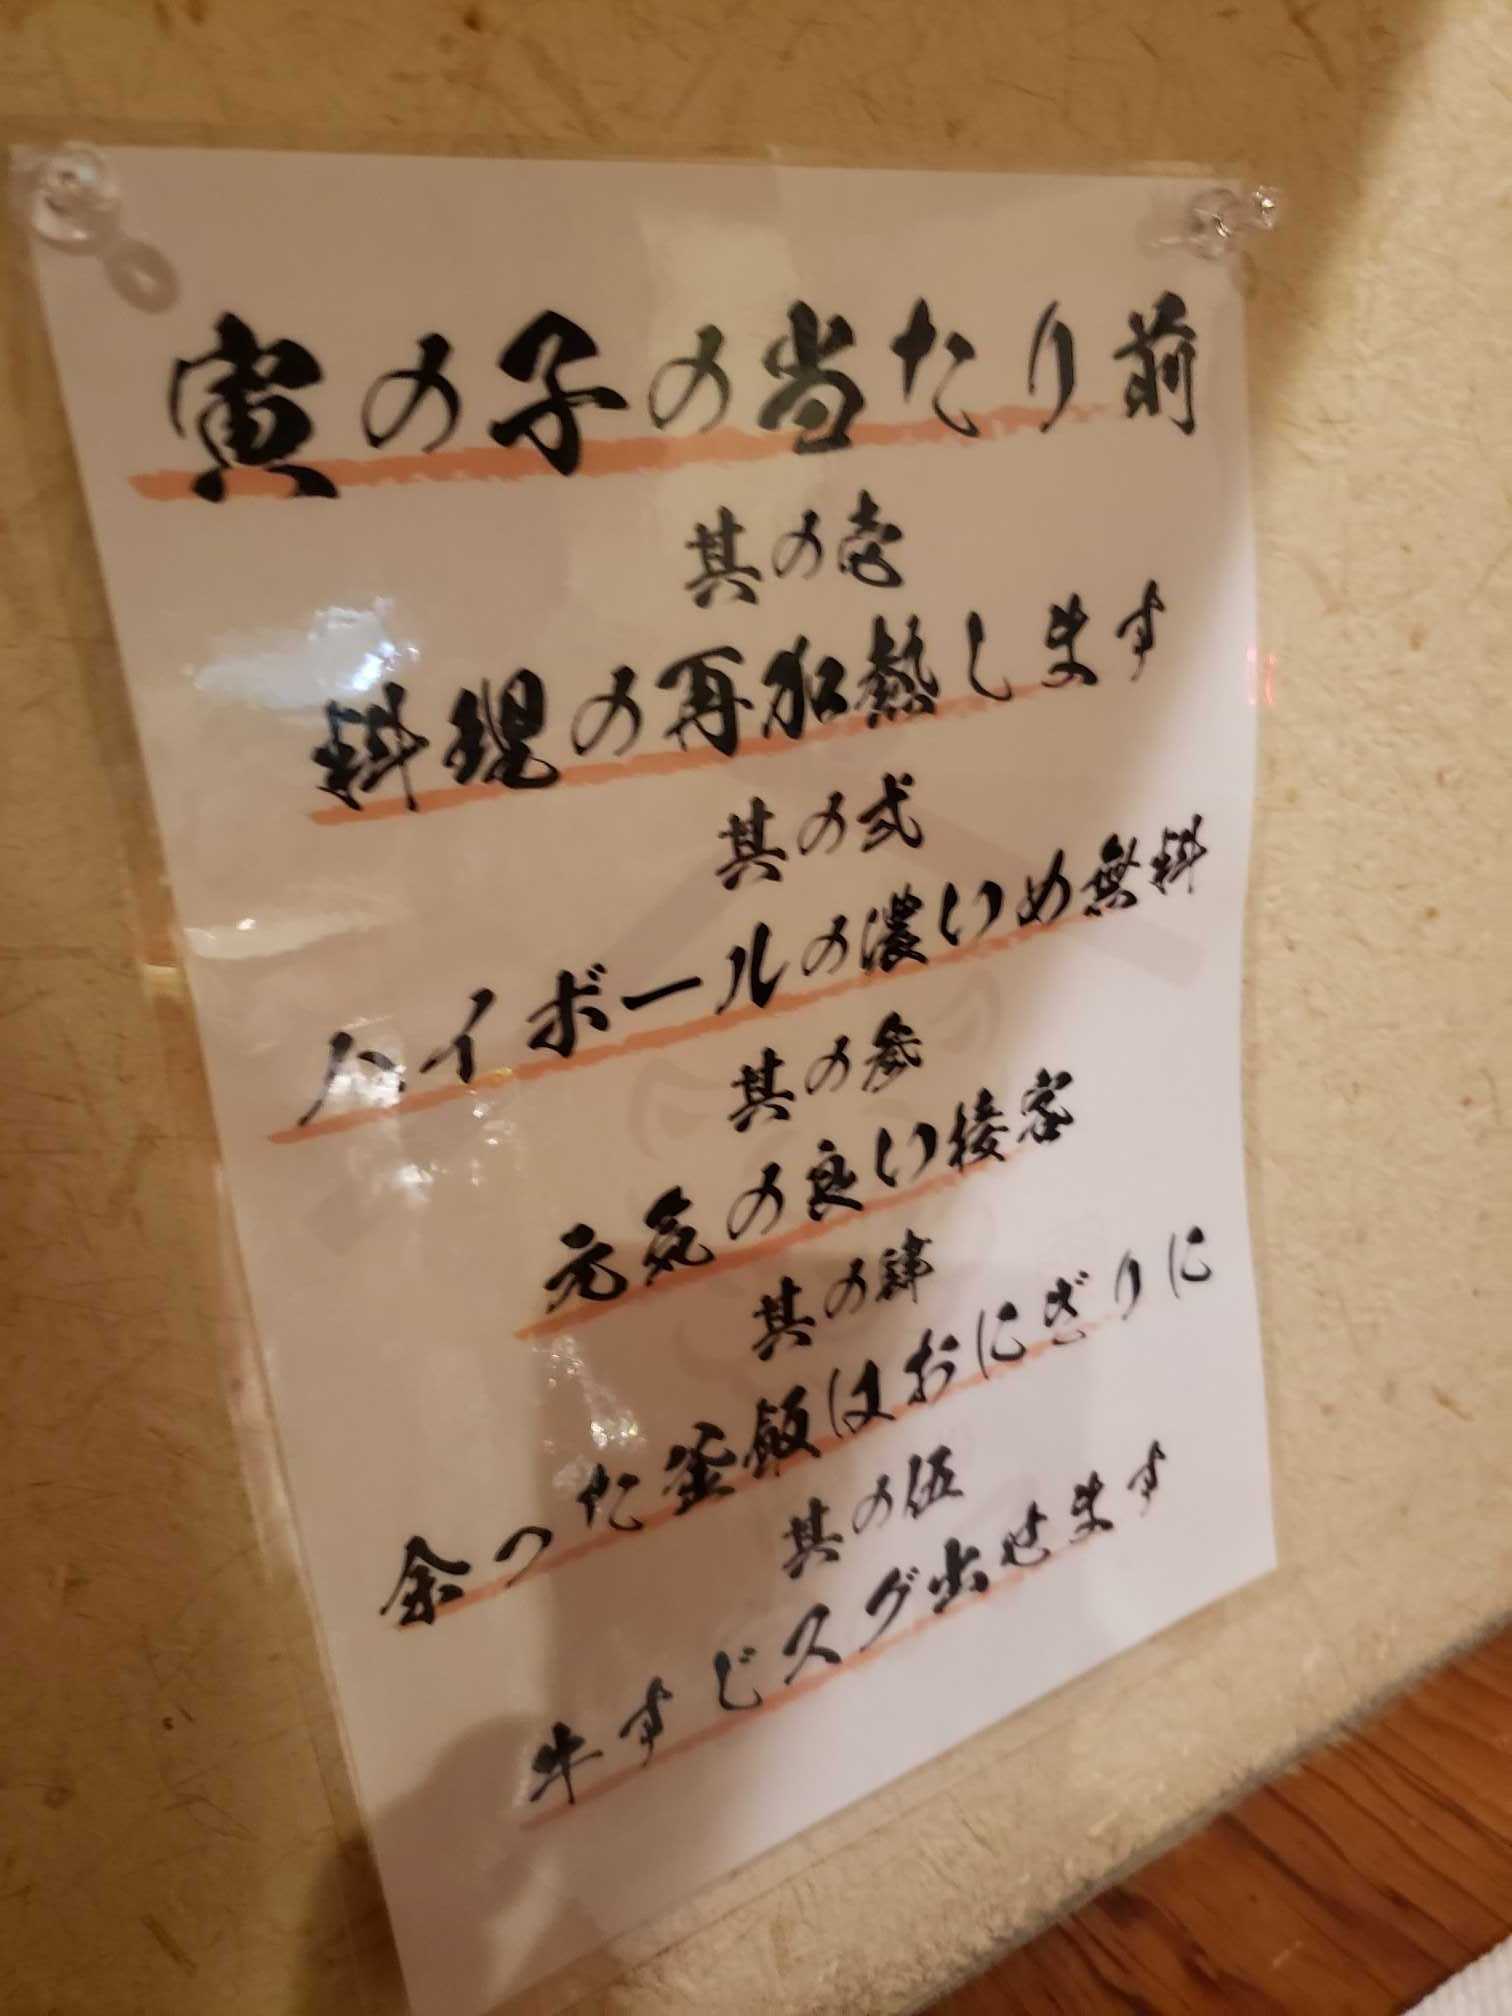 寅の子の当たり前
其の壱
料理の再加熱します
其の弐
ハイボールの濃いめ無料
其の参
元気の良い接客
其の肆
余った釜飯はおにぎりに
其の伍
牛すじスグ出せます